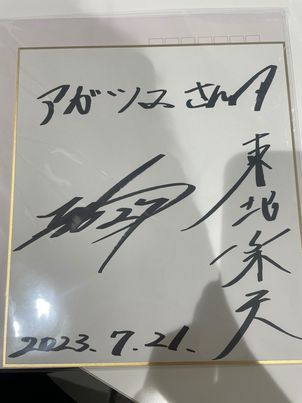 アガツマさん
東北楽天
2023.7.21.